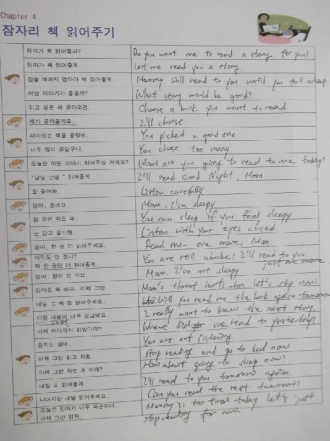 Chapter 4
잠자리 책 읽어주기
엄마가 책 읽어줄까?
Do you want me to read a story for you?
엄마가 책 읽어줄게.
Let me read you a story
잠들 때까지 엄마가 책 읽어줄게.
Mommy will read to you until you fall asleep
어떤 이야기가 좋을까?
What story would be good?
읽고 싶은 책 골라오렴.
Choose a book you want to read.
제가 골라올게요.
I'll choose
재미있는 책을 골랐네.
You picked a good one
너무 많이 골랐구나.
You chose too many
오늘은 어떤 이야기 읽어주실 거예요?
What are you going to read to me today?
읽어줄게.
I'll read Good Night, Moon
잘 들어봐.
Listen carefully
엄마, 졸려요.
Mom, I'm sleepy
잠 오면 자도 돼.
You can sleep if you feel sleepy
눈 감고 들으렴.
Listen with your eyes closed.
엄마, 한 권 더 읽어주세요.
Read me one more, Mom
아직도 안 자니?
You are still awake! I'll read to you
just one more
엄마, 잠이 안 와요.
Mom, I'm not sleepy
Mom's throat hurts too let's stop now!
내일 또 책 읽어줄게.
Will you read me the book again tomorrow
I really want to know the next story
어제 어디까지 읽었더라?
Where did we end yesterday?
You are not listening
이제 그만 읽고 자렴.
Stop reading and go to bed now
이제 그만 자는 게 어때?
How about going to sleep now?
내일 또 읽어줄게
I'll read to you tomorrow again.
나머지는 내일 읽어주세요.
Can you read the rest tomorrow?
오늘은 엄마가 너무 피곤하다.
Mommy is too tired today let's just
이제 그만 읽자.
stop reading for now.